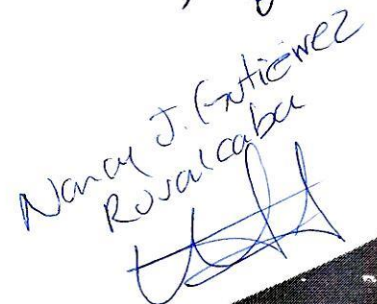 Nancy J. Gutiérrez
Ruvalcaba